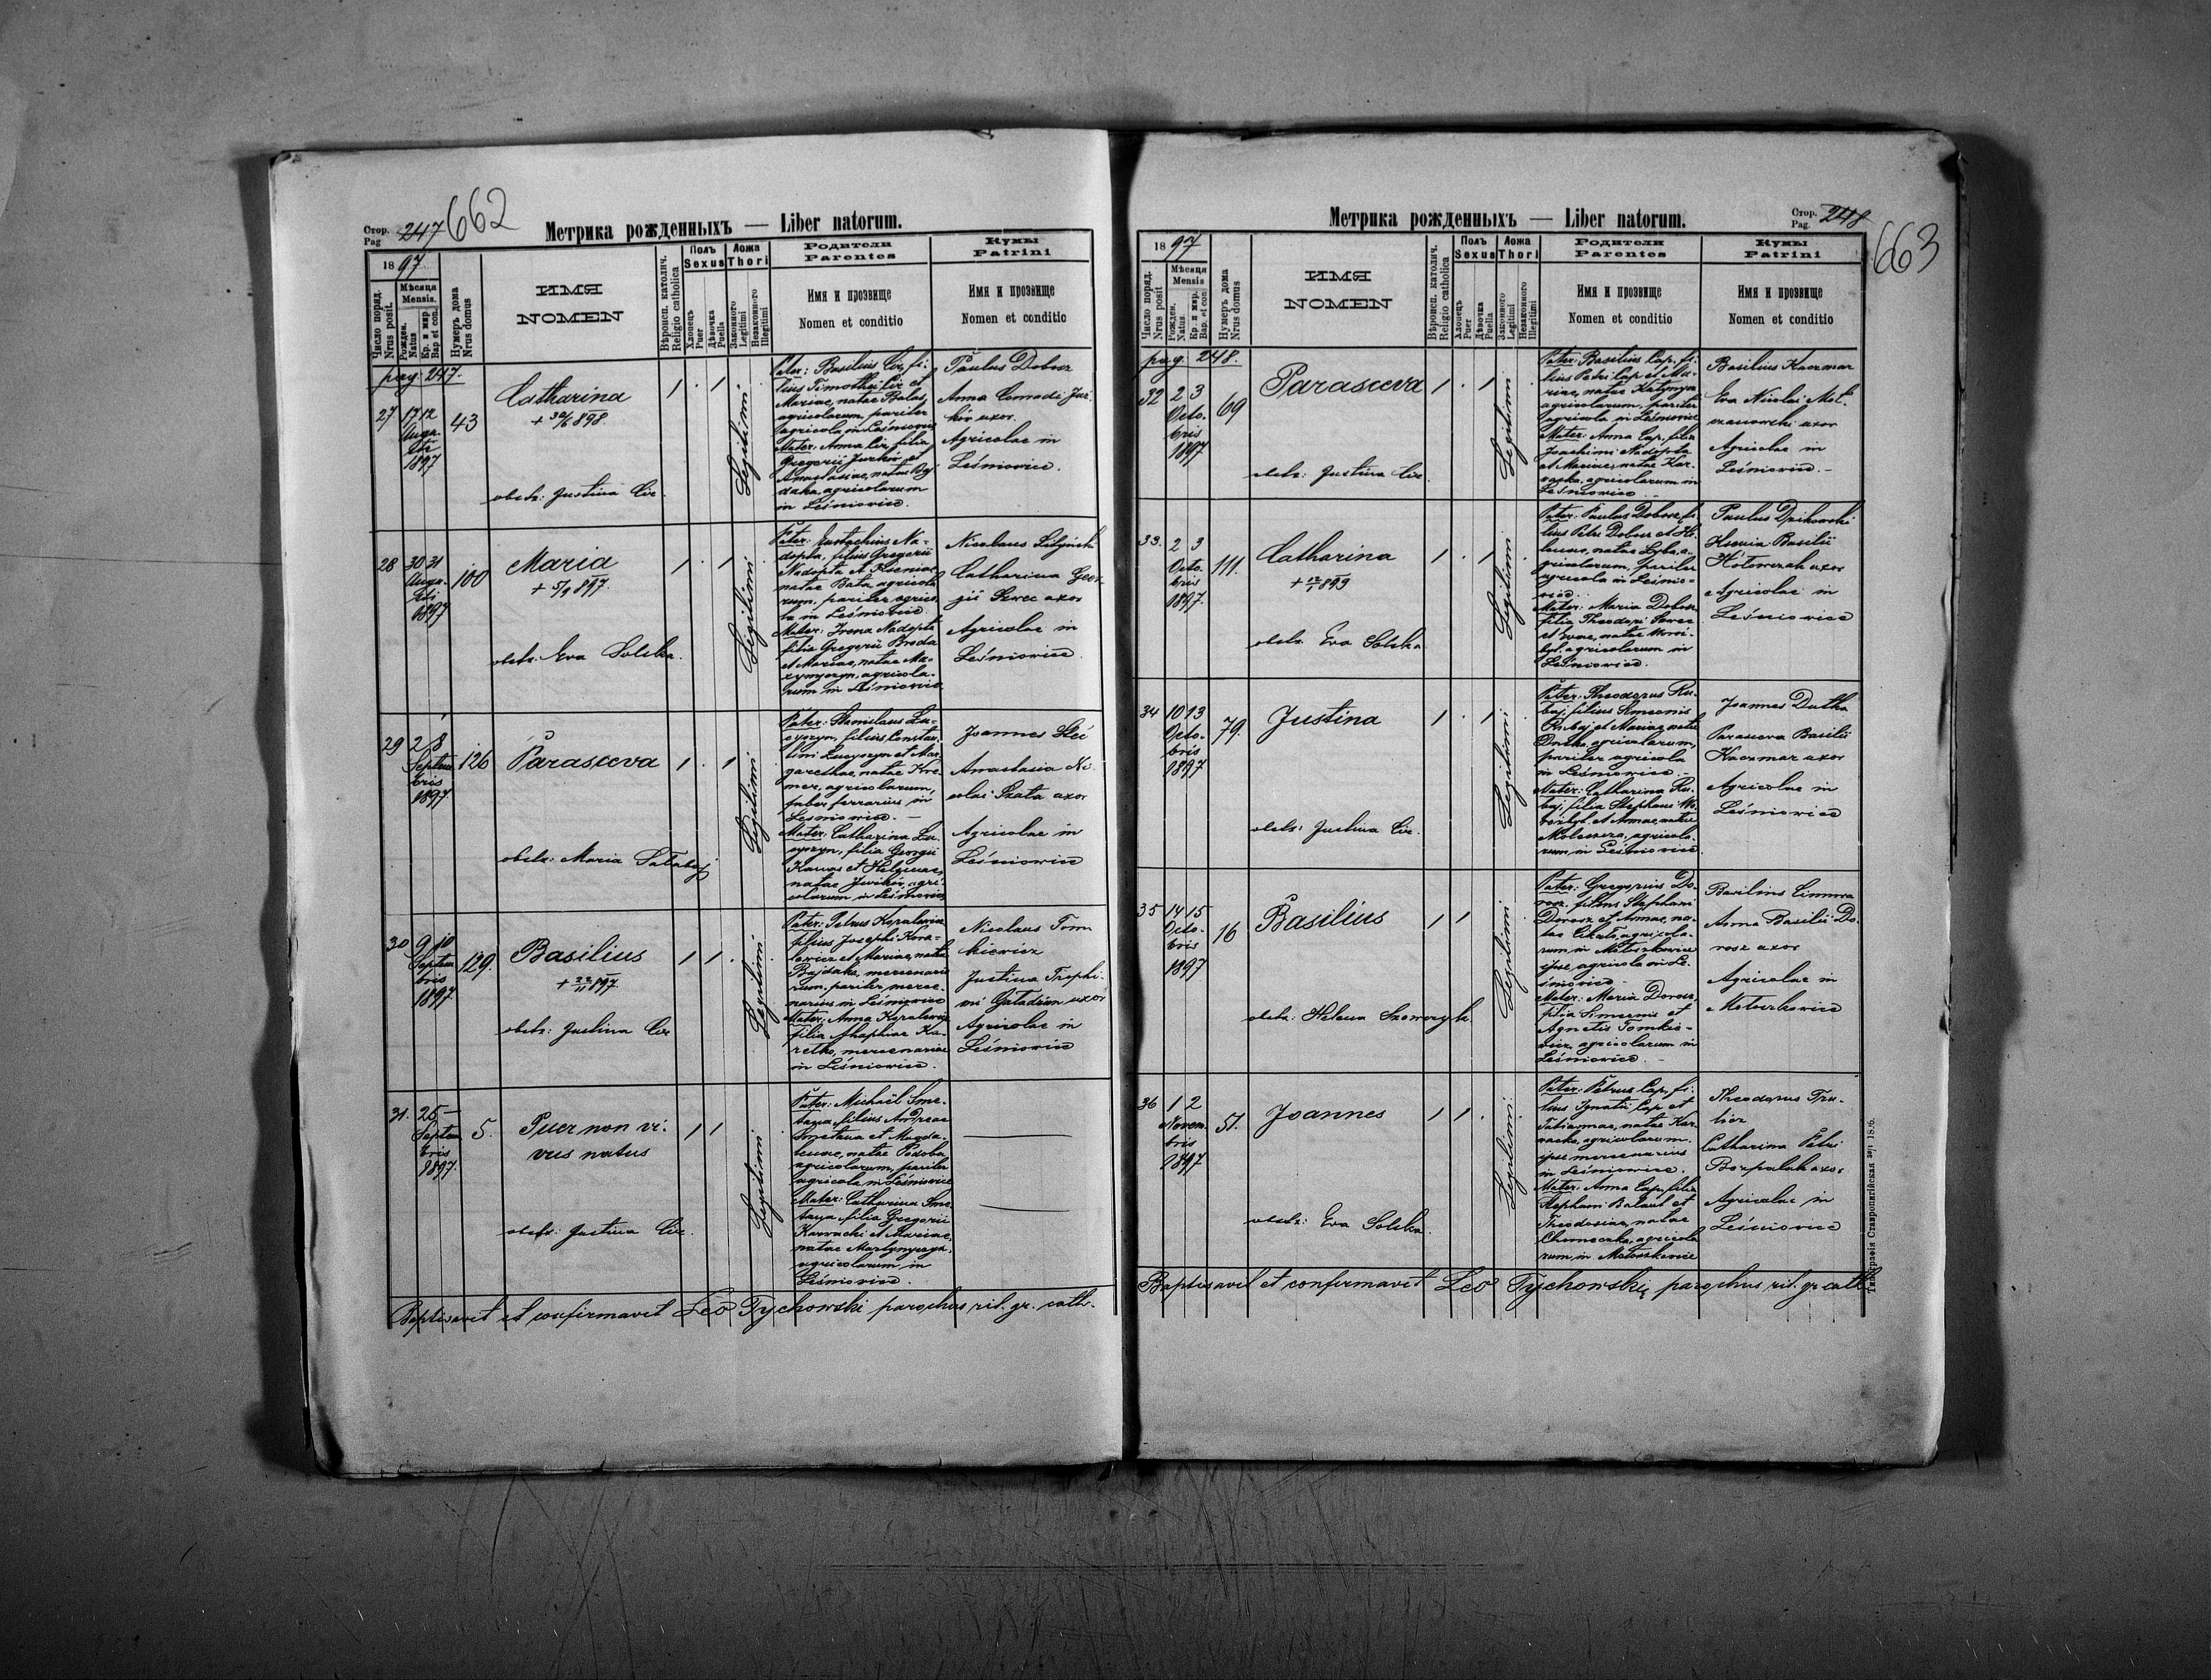 Стор. 247 662
Pag
Метрика рожденныхъ — Liber natorum.
1897
Число поряд.
Nrus posit.
Мѣсяця
Mensis.
Рожден.
Natus
Кр. и мир.
Bap et con.
Нумеръ дома
Nrus domus
ИМЯ
NOMEN
Вѣроисп. католич.
Religio catholica
Полъ
Sexus
Хлопець
Puer
Дѣвочка
Puella
Ложа
Thori
Законного
Legitimi
Незаконного
Illegitimi
Родители
Parentes
Имя и прозвище
Nomen et conditio
Кумы
Patrini
Имя и прозвище
Nomen et conditio
pag. 247.
27 17 12
Augu-
sti
1897
43
Catharina
+ 30/6 898.
obstr: Justina Cir.
Legitimi
Pater: Basilius Cir, fi-
lius Timothei Cir et
Mariae, natae Balas,
agricolarum, pariter
agricola in Leśniowice
Mater: Anna Cir, filia
Gregorii Jurkiw et
Anastasiae, natae Baj-
daka, agricolarum
in Leśniowice.
Paulus Dobosz
Anna Conradi Jur-
kiw uxor
Agricolae in
Leśniowice.
28 30 31
Augu-
sti
1897
100
Maria
+ 5/9 897.
obstr: Eva Solska.
Legitimi
Pater: Eustachius Na-
dopta, filius Gregorii
Nadopta et Kseniae
natae Bata, agricola-
rum, pariter agrico-
la in Leśniowice
Mater: Irena Nadopta
filia Gregorii Broda
et Mariae, natae
agricola-
rum in Leśniowice.
Nicolaus
Catharina Geor-
gii Szwec uxor
Agricolae in
Leśniowice.
29 2/8
Septem-
bris
1897
126
Parasceva
obstr: Maria
Legitimi
Pater: Stanislaus
filius Constan-
tini et Mar-
garethae, natae Kre-
mer, agricolarum,
faber ferrarius in
Leśniowice. —
Mater: Catharina
filia Georgii
et Helenae,
natae agri-
colarum in Leśniowice
Joannes
Anastasia Ni-
colai uxor
Agricolae in
Leśniowice
30 9 10
Septem-
bris
1897
129.
Basilius
+ 22/11 897
obstr: Justina Cir
Legitimi
Pater: Petrus Kopalewicz
filius Josephi
et Mariae, natae
Bajdaka, mercenario-
rum, pariter merce-
narius in Leśniowice
Mater: Anna
filia
mercenariae
in Leśniowice.
Nicolaus Tom-
kiewicz
Justina Trophi-
mi uxor
Agricolae in
Leśniowice
31. 25 —
Septem-
bris
1897.
5.
Puer non vi-
vus natus
obstr. Justina Cir.
Legitimi
Pater: Michaël Sme-
tana, filius Andreae
Smetana et Magda-
lenae, natae Podoba,
agricolarum, pariter
agricola in Leśniowice
Mater: Catharina Sme-
tana, filia Gregorii
et Mariae,
natae Martynyszyn,
agricolarum in
Leśniowice.
Baptisavit et confirmavit Leo Tychowski parochus rit. gr. cath.
Метрика рожденныхъ — Liber natorum.
Стор. 248
Pag.
663
1897
Число поряд.
Nrus posit
Мѣсяця
Mensis
Рожден.
Natus.
Кр. и мир.
Bap. et con
Нумеръ дома
Nrus domus
ИМЯ
NOMEN
Вѣроисп. католич.
Religio catholica
Полъ
Sexus
Хлопець
Puer
Дѣвочка
Puella
Ложа
Thori
Законного
Legitimi
Незаконного
Illegitimi
Родители
Parentes
Имя и прозвище
Nomen et conditio
Кумы
Patrini
Имя и прозвище
Nomen et conditio
pag. 248.
32 2 3
Octo-
bris
1897
69
Parasceva
obstr: Justina Cir.
Legitimi
Pater: Basilius Cap, fi-
lius Petri Cap et Ma-
riae, natae
agricolarum, pariter
agricola in Leśniowice
Mater: Anna Cap, filia
Joachimi Nadopta
et Mariae, natae Kar-
agricolarum in
Leśniowice. —
Basilius Kaczmar
Eva Nicolai
uxor
Agricolae in
Leśniowice. —
33. 2 3
Octo-
bris
1897.
111.
Catharina
+ 899
obstr. Eva Solska
Legitimi
Pater: Paulus Dobosz, fi-
lius Petri Dobosz et He-
lenae, natae Lyba, a-
gricolarum, pariter
agricola in Leśnio-
wice.
Mater: Maria Dobosz
filia Theodori Szwec
et Evae, natae
agricolarum in
Leśniowice.
Paulus Dzikowski
Ksenia Basilii
Hołowczak uxor
Agricolae in
Leśniowice
34 10 13
Octo-
bris
1897
79.
Justina
obstr: Justina Cir.
Legitimi
Pater: Theodorus Ru-
baj, filius Simeonis
Rubaj et Mariae, natae
Dutka, agricolarum,
pariter agricola
in Leśniowice. —
Mater: Catharina Ru-
baj, filia Stephani
et Annae, natae
agricola-
rum in Leśniowice.
Joannes Dutka
Parasceva Basilii
Kaczmar uxor
Agricolae in
Leśniowice
35 14 15
Octo-
bris
1897
16
Basilius
obstr: Helena Szewczyk.
Legitimi
Pater: Gregorius Do-
rosz, filius Stephani
Dorosz et Annae, na-
tae agricola-
rum in Matoszkowice
ipse agricola in Le-
śniowice
Mater: Maria Dorosz,
filia Simeonis et
Agnetis Tomkie-
wicz, agricolarum in
Leśniowice. —
Basilius
Anna Basilii Do-
rosz uxor
Agricolae in
Matoszkowice
36 1 2
Novem-
bris
1897
51.
Joannes
obstr: Eva Solska.
Legitimi
Pater: Petrus Cap, fi-
lius Ignatii Cap et
Tatiannae, natae Kar-
agricolarum.
ipse mercenarius
in Leśniowice.
Mater: Anna Cap, filia
Stephani Balaut et
Theodosiae, natae
agricola-
rum in Matoszkowice
Theodorus
Catharina Petri
uxor
Agricolae in
Leśniowice
Baptisavit et confirmavit Leo Tychowski, parochus rit. gr. cath
Типографія Ставропигійская 1896.